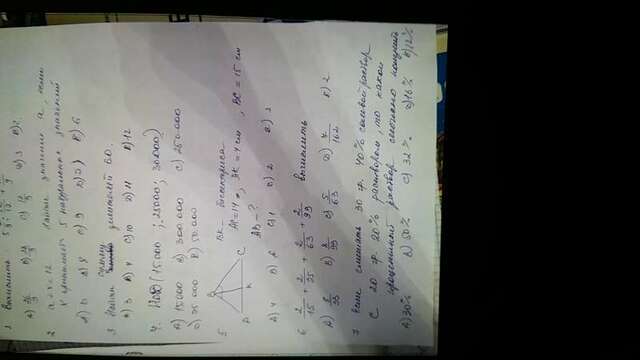 1. Вычислить
A) B) C) D) 3 E)
2. a + x = 12 Найти значение a, если
x принимает 5 натуральных значений
B) 8 C) 9 E) 6
3 Найти сумму делителей 60.
A) 3 B) 4 C) 10 D) 11 E) 12
4. (15000; 25000; 30000)
A) 15000 B) 300.000 C) 250.000
D) 75.000 E) 50.000
5 BK – биссектриса
B AC = 14, = 4 см, BC = 15 см
A K C AB – ?
A) 4 B) 6 C) 1 D) 2 E) 3
6 2/15 + 2/35 + 2/63 + 2/99 вычислить
A) 8/33 B) C) 5/63 D) 7/162 E) 2
7 если смешать 30 гр. 40% солевой раствор
с 20 гр. 20% раствором, то какой
процентный раствор
A) 30% B) 50% C) 32% D) 16% E) 12%